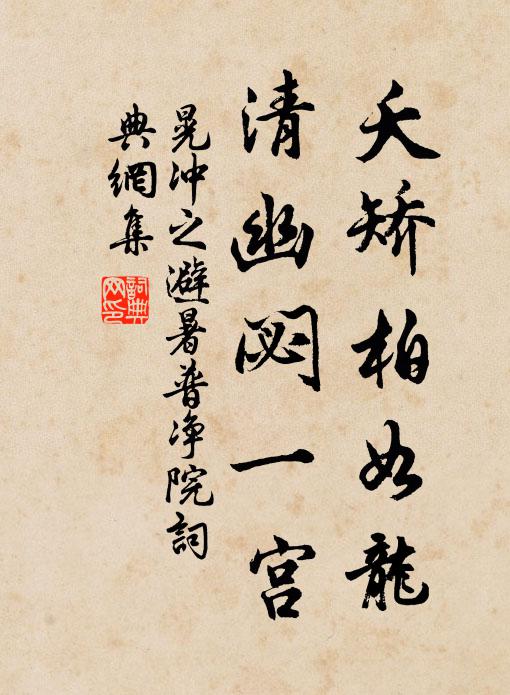 夭矫柏如龍
清幽閟一宫
晁冲之避暑普净院詞
典網集
詞典
网印